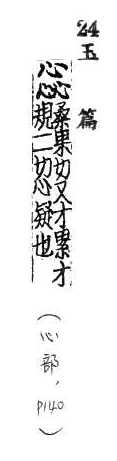 24玉篇
惢桑果切又才累才
規二切心疑也
(心部,P140)